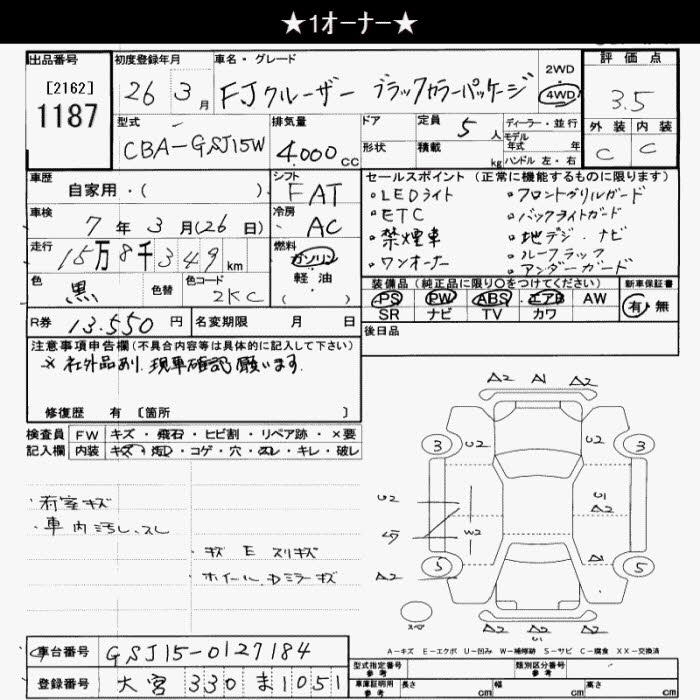 ★1オーナー★
出品番号 初度登録年月 車名・グレード 評価点
[2162]
1187
26年3月 FJクルーザー ブラックカラーパッケージ
2WD
4WD
3.5
型式 排気量 ドア 定員 5人 ディーラー・並行 外装 内装
CBA-GSJ15W 4.000cc 形状 積載 kg モデル年式 年 C C
ハンドル 左・右
車歴 シフト セールスポイント (正常に機能するものに限ります)
自家用・( ) FAT ・LEDライト ・フロントグリルガード
車検 冷房 ・ETC ・バックライトガード
7年3月(26日) AC ・禁煙車 ・地デジ.ナビ
走行 燃料 ・ワンオーナー ・ルーフラック
15万8千349km ガソリン ・アンダーガード
色 色替 色コード 軽油
黒 2KC ( )
装備品(純正品に限り○をつけてください) 新車保証書
PS PW ABS エアB AW 有・無
SR ナビ TV カワ
R券 13.550円 名変期限 月 日 後日品
注意事項申告欄(不具合内容等は具体的に記入して下さい)
※社外品あり.現車確認願います.
修復歴 有 [箇所 ]
検査員 FW キズ・飛石・ヒビ割・リペア跡・×要
記入欄 内装 キズ・汚れ・コゲ・穴・スレ・キレ・破レ
A2 A1 A2
3 U2 U2 3
・荷室キズ
・車内汚れ.スレ
U2 U1
A2
W2
・キズ E スリキズ
・ホイール.Dミラーキズ
A2 A1
5 5
スペア
A2 A2 A2
U1
A-キズ E-エクボ U-凹み W-補修跡 S-サビ C-腐食 XX-交換済
車台番号 GSJ15-0127184
型式指定番号 参考 類別区分番号 参考
登録番号 大宮 330 ま 1051
車庫証明用 参考 長さ cm 幅 cm 高さ cm